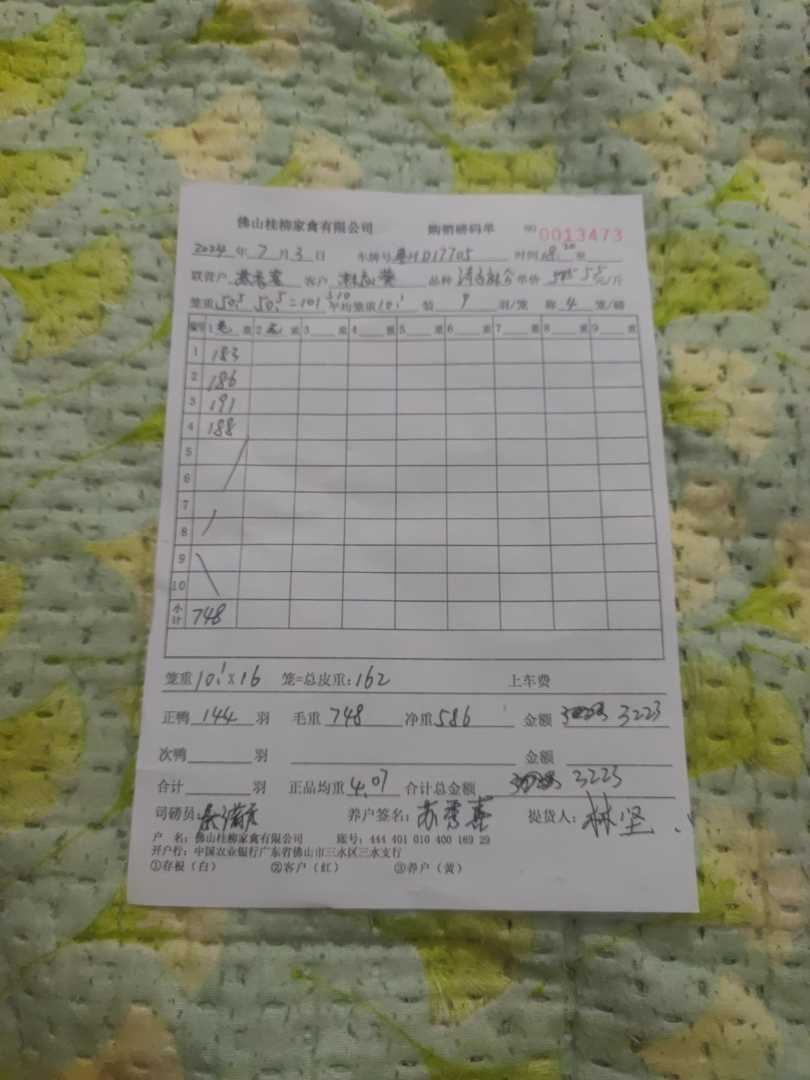 佛山桂柳家禽有限公司 购销磅码单 NO 0013473
2024 年 7 月 3 日 车牌号 粤HD17705 时间
联营户 客户 品种 单价 5.5 元/斤
笼重 50.5 50.5 = 101 平均笼重 10.1 装 9 羽/笼 称 4 笼/磅
编号 1 毛 重 2 重 3 重 4 重 5 重 6 重 7 重 8 重 9 重
1 183
2 186
3 191
4 188
5
6
7
8
9
10
小计 748
笼重 10.1 x 16 笼=总皮重: 162 上车费
正鸭 144 羽 毛重 748 净重 586 金额 3223
次鸭 羽 金额
合计 羽 正品均重 4.07 合计总金额 3223
司磅员: 养户签名: 苏秀喜 提货人: 林坚
户 名: 佛山桂柳家禽有限公司 账号: 444 401 010 400 169 29
开户行: 中国农业银行广东省佛山市三水区三水支行
①存根(白) ②客户(红) ③养户(黄)